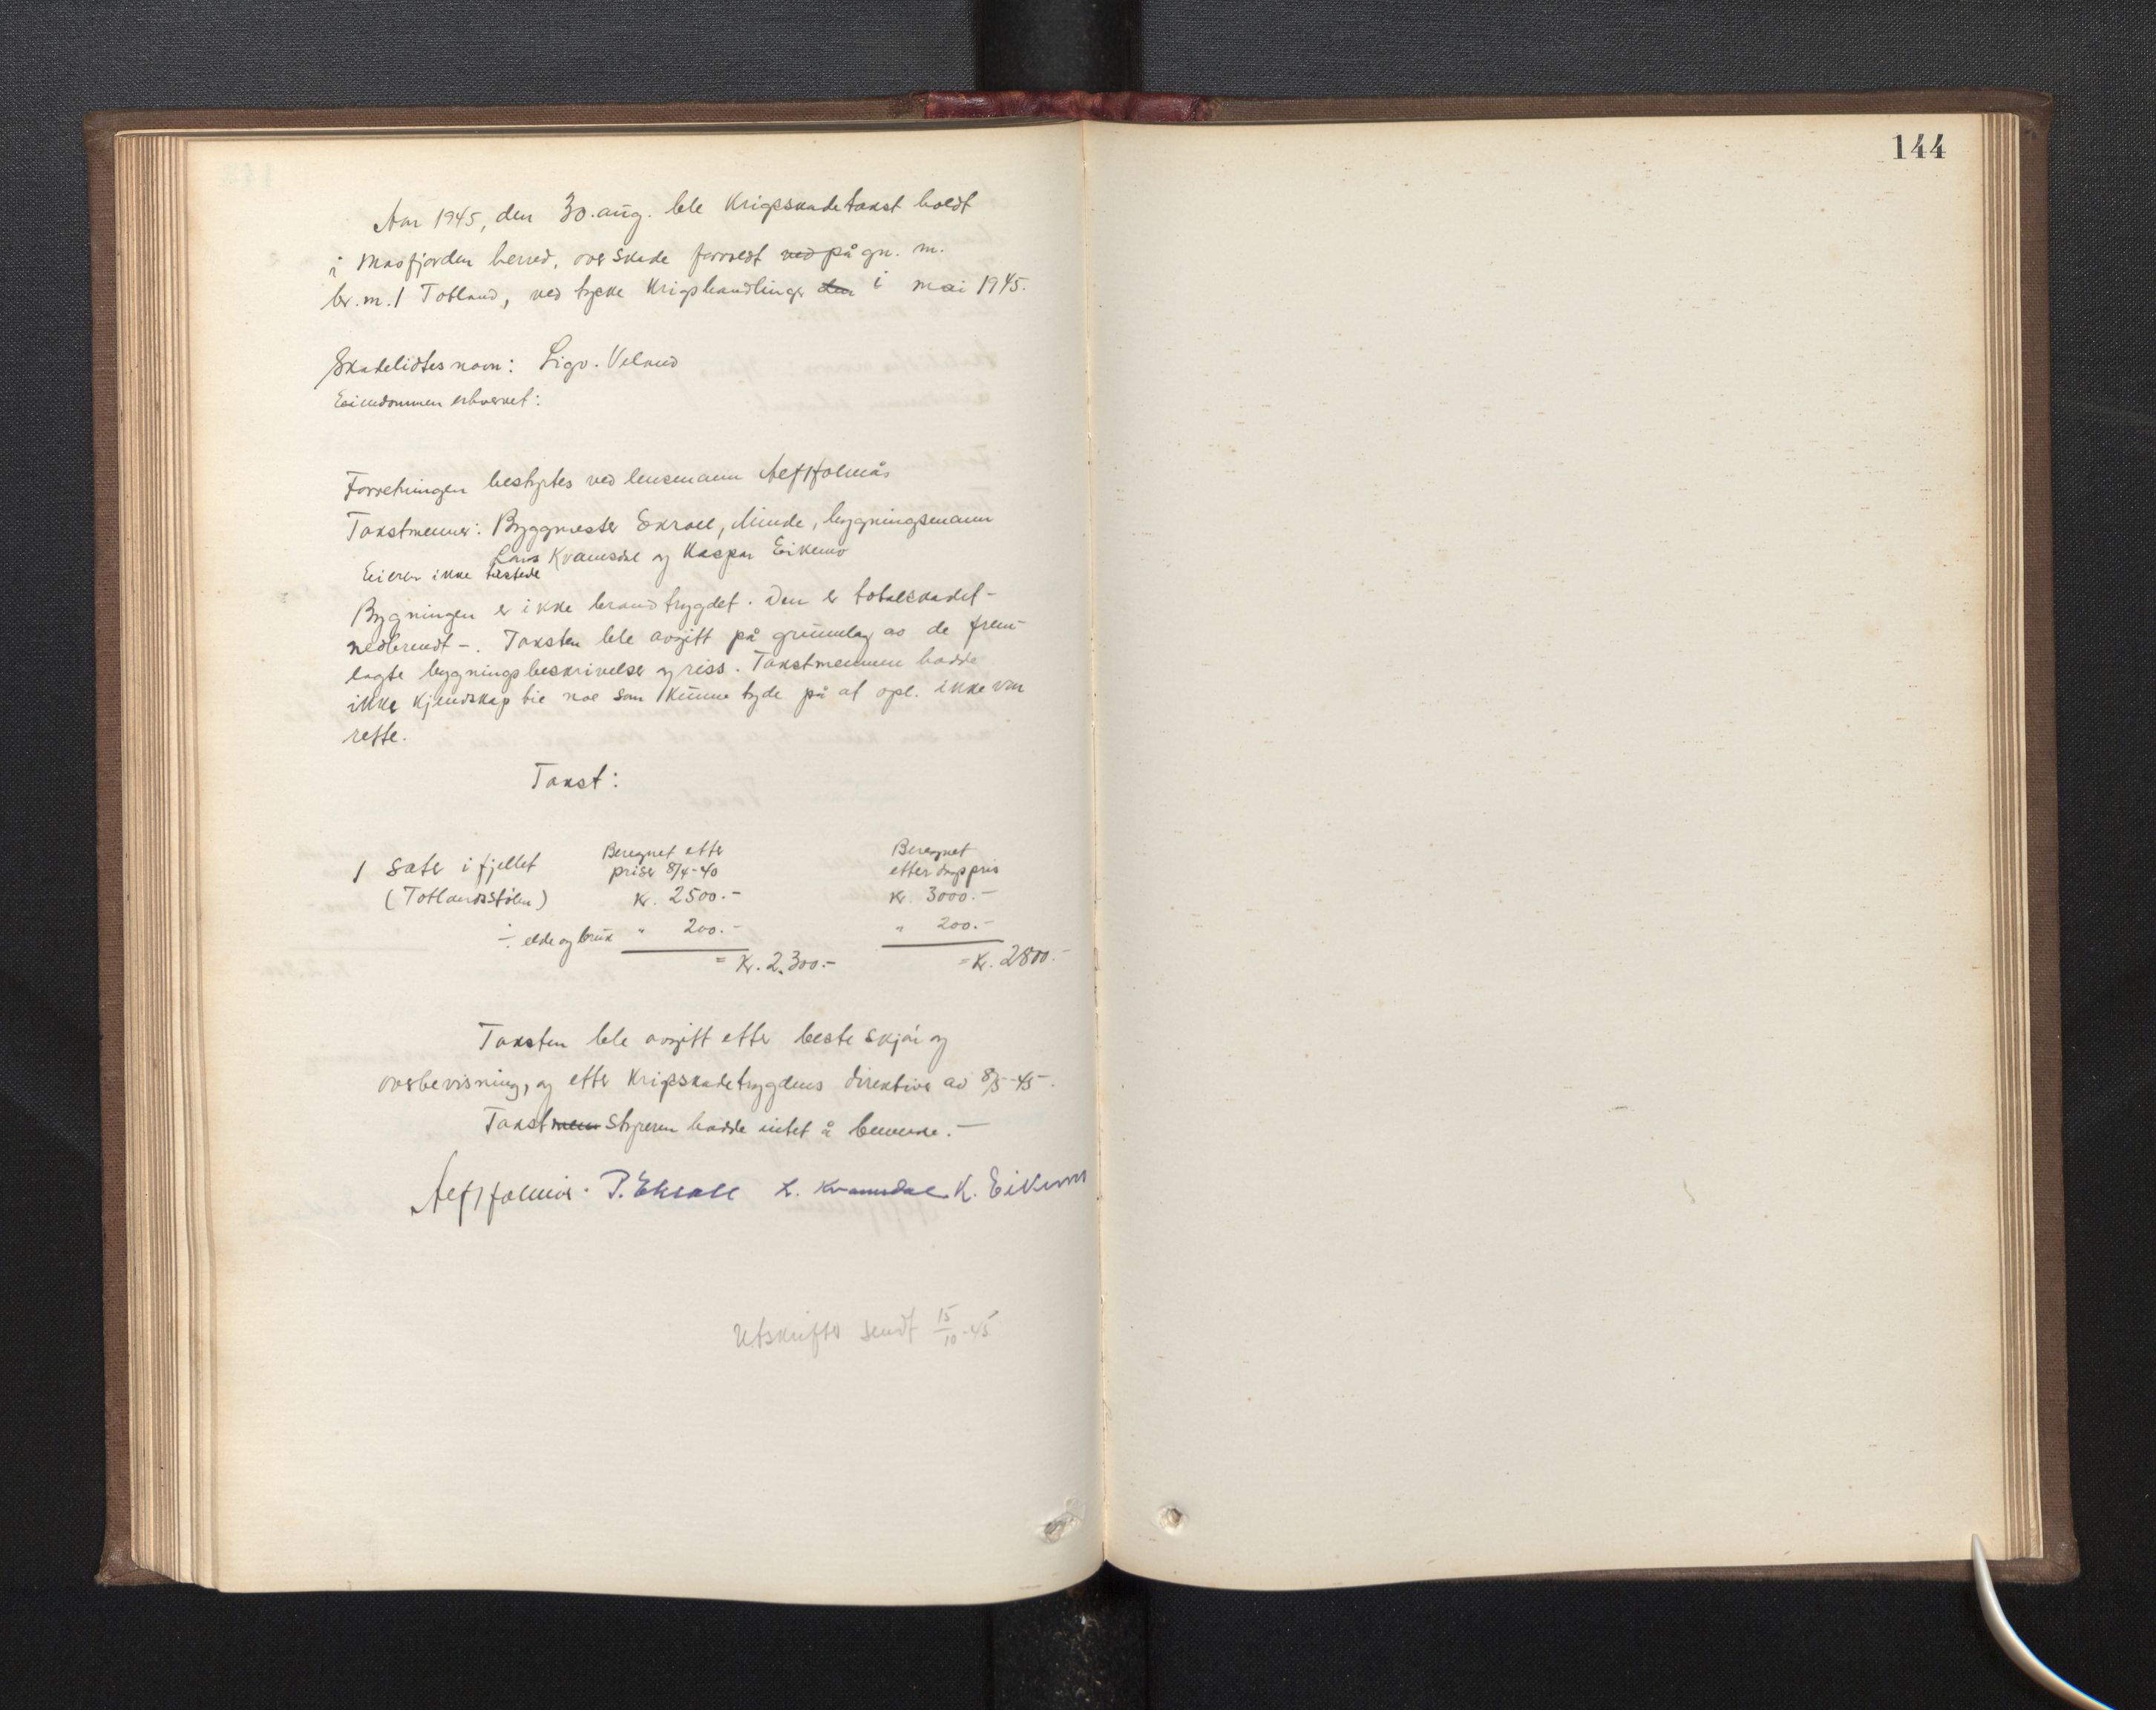 144
Aar 1945, den 30. aug. ble krigsskadetakst holdt
i Masfjorden herred, over skade forvoldt ved på gn. m.
br. m. 1 Totland, ved tyske krigshandlinger den i mai 1945.
Skadelidtes navn: Sigv. Veland
Eiendommen erhvervet:
Forretningen bestyrtes ved lensmann Alf Holmås
Takstmenner: Byggmester Ekroll, Minde, bygningsmann
Lars Kvamsdal og Kaspar Eikemo
Eieren ikke tilstede
Bygningen er ikke brandtrygdet. Den er totalskadet -
nedbrendt -. Taksten ble avgitt på grunnlag av de frem-
lagte bygningsbeskrivelser og riss. Takstmennene hadde
ikke kjendskap til noe som kunne tyde på at opl. ikke var
rette.
Takst:
1 sæter i fjellet Beregnet etter priser 8/4-40 Beregnet etter dagspris
(Totlandsstølen) kr. 2500.- kr. 3000.-
÷ elde og bruk " 200.- " 200.-
= Kr. 2.300.- = Kr. 2800.-
Taksten ble avgitt etter beste skjøn og
overbevisning, og etter Krigsskadetrygdens direktiver av 8/5-45.
Takstmenn styreren hadde intet å bemerke.-
Alf Holmås. P. Ekroll L. Kvamsdal K. Eikemo
Utskrifter sendt 15/10-45